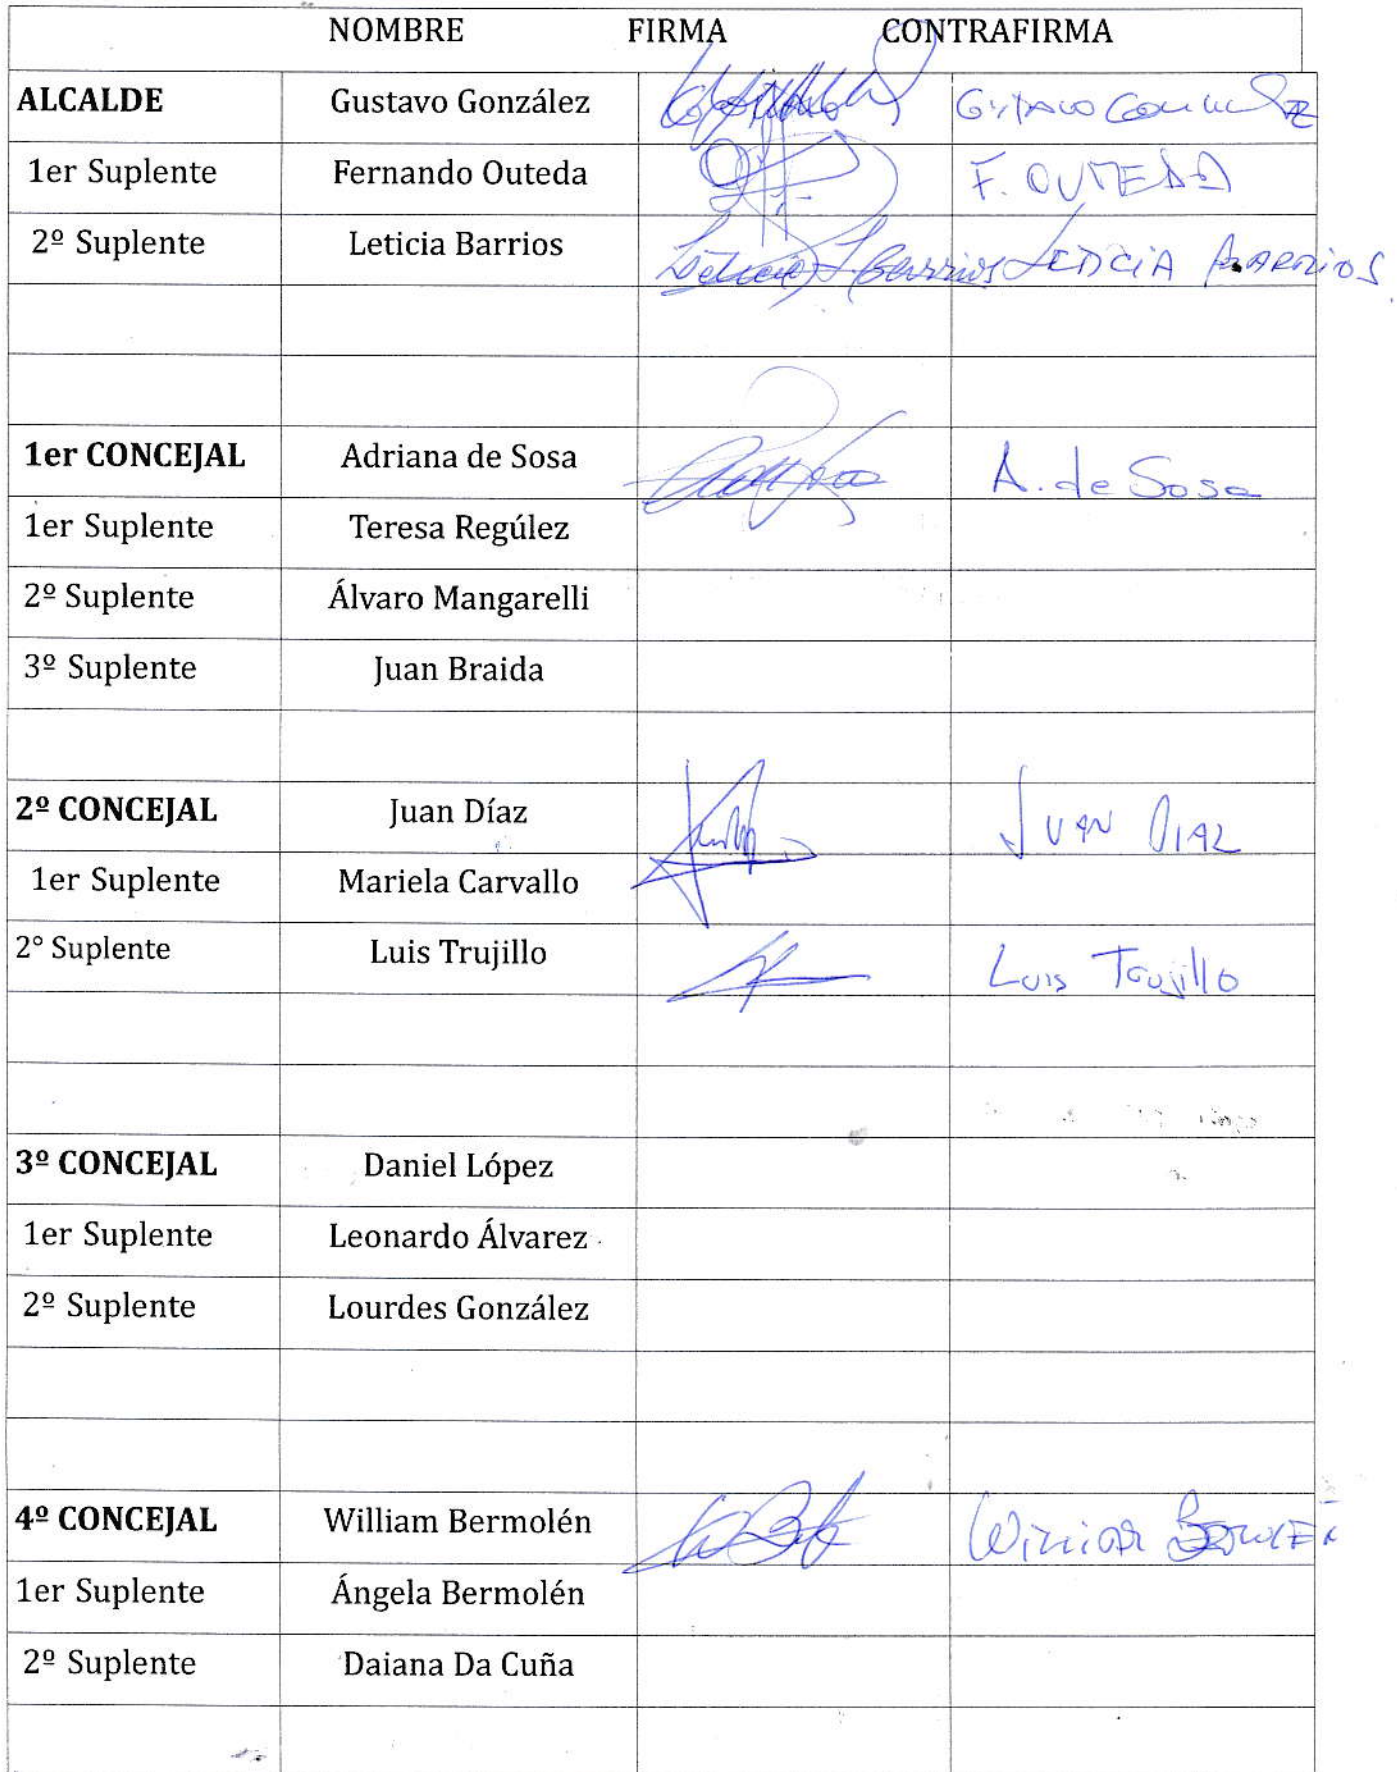 NOMBRE FIRMA CONTRAFIRMA
ALCALDE Gustavo González Gustavo González
1er Suplente Fernando Outeda F. OUTEDA
2º Suplente Leticia Barrios Leticia Barrios LETICIA BARRIOS
1er CONCEJAL Adriana de Sosa A. de Sosa
1er Suplente Teresa Regúlez
2º Suplente Álvaro Mangarelli
3º Suplente Juan Braida
2º CONCEJAL Juan Díaz JUAN DIAZ
1er Suplente Mariela Carvallo
2° Suplente Luis Trujillo Luis Trujillo
3º CONCEJAL Daniel López
1er Suplente Leonardo Álvarez
2º Suplente Lourdes González
4º CONCEJAL William Bermolén
1er Suplente Ángela Bermolén
2º Suplente Daiana Da Cuña